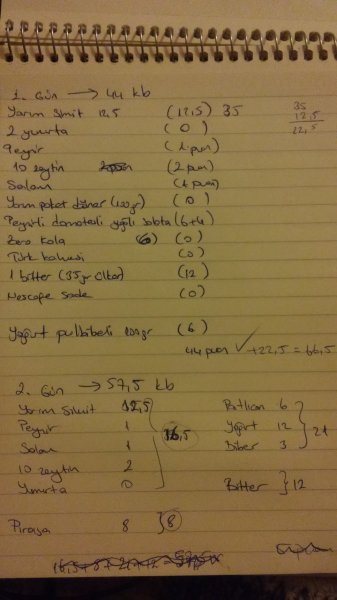 1. Gün → 44 kb
Yarım simit 12,5 (12,5) 35
35
12,5
22,5
2 yumurta (0)
Peynir (1 puan)
10 zeytin (2 puan)
Salam (1 puan)
Yarım paket döner (100gr) (0)
Peynirli domatesli yağlı salata (6+4)
Zero kola (0)
Türk kahvesi (0)
1 bitter (35gr ülker) (12)
Nescafe sade (0)
Yoğurt pulbiberli 100gr (6)
44 puan ✓ +22,5 = 66,5
2. Gün → 57,5 kb
Yarım simit 12,5
Peynir 1
Salam 1
10 zeytin 2
Yumurta 0
16,5
Patlıcan 6
Yoğurt 12
Biber 3
21
Bitter 12
Pırasa 8 8